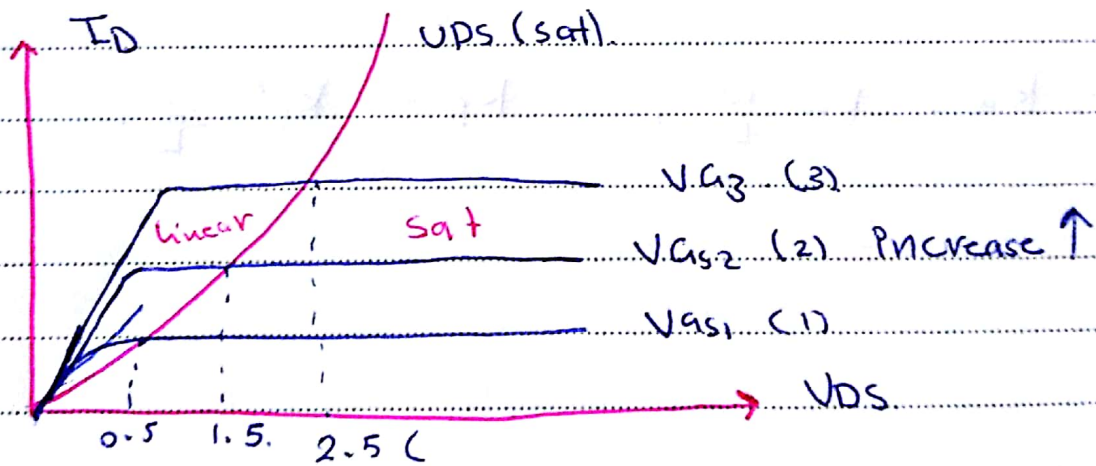 ID
VDS (sat).
VG3 (3)
linear
sat
VGS2 (2) increase ↑
VGS1 (1)
VDS
0.5 1.5. 2.5 (